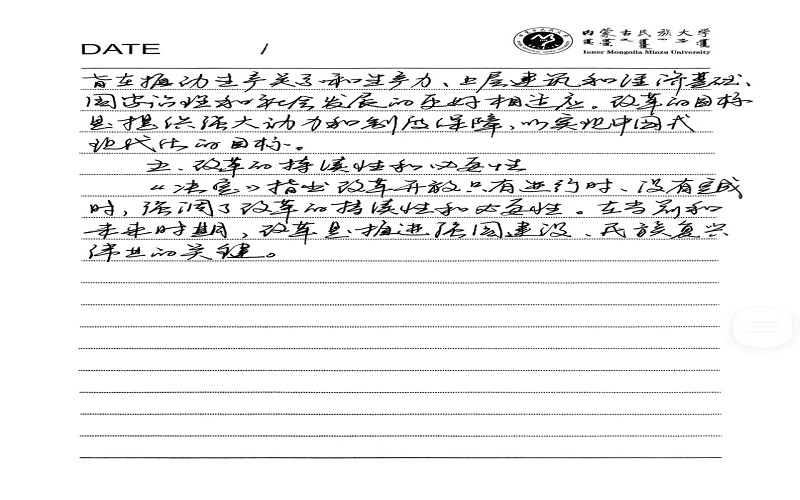 DATE /
内蒙古民族大学
Inner Mongolia Minzu University
旨在推动生产关系和生产力、上层建筑和经济基础、
国家治理和社会发展的更好相适应。改革的目标
是提供强大动力和制度保障,以实现中国式
现代化的目标。
五、改革的持续性和必要性
《决定》指出改革开放只有进行时、没有完成
时,强调了改革的持续性和必要性。在当前和
未来时期,改革是推进强国建设、民族复兴
伟业的关键。